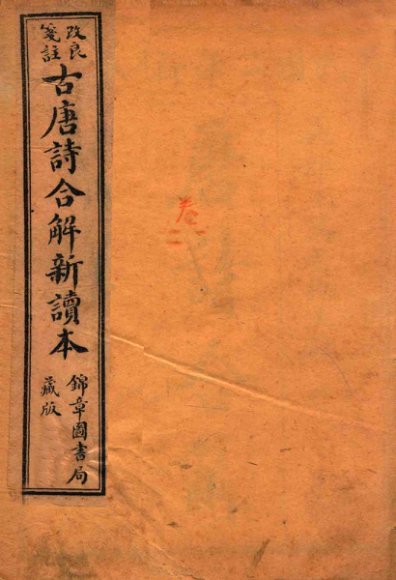 改良
箋註
古唐詩合解新讀本
錦章圖書局
藏版
卷一
二